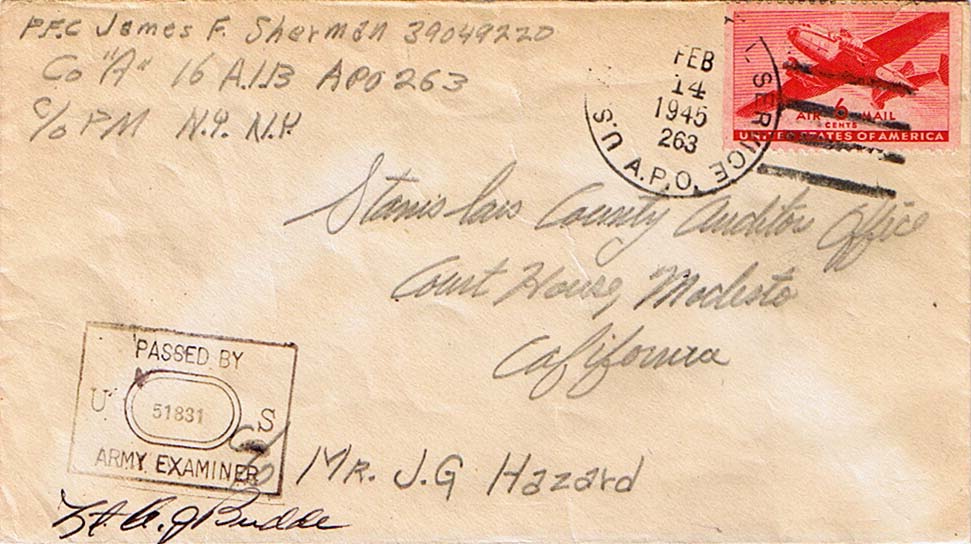 PFC James F. Sherman 39049220
Co "A" 16 A.I.B APO 263
c/o PM N.Y. N.Y.
FEB
14
1945
263
U.S. A.P.O.
L SERVICE
6
AIR MAIL
CENTS
UNITED STATES OF AMERICA
Stanislaus County Auditor Office
Court House, Modesto
California
PASSED BY
U S
51831
ARMY EXAMINER
c/o Mr. J.G Hazard
Lt. A. J Budde